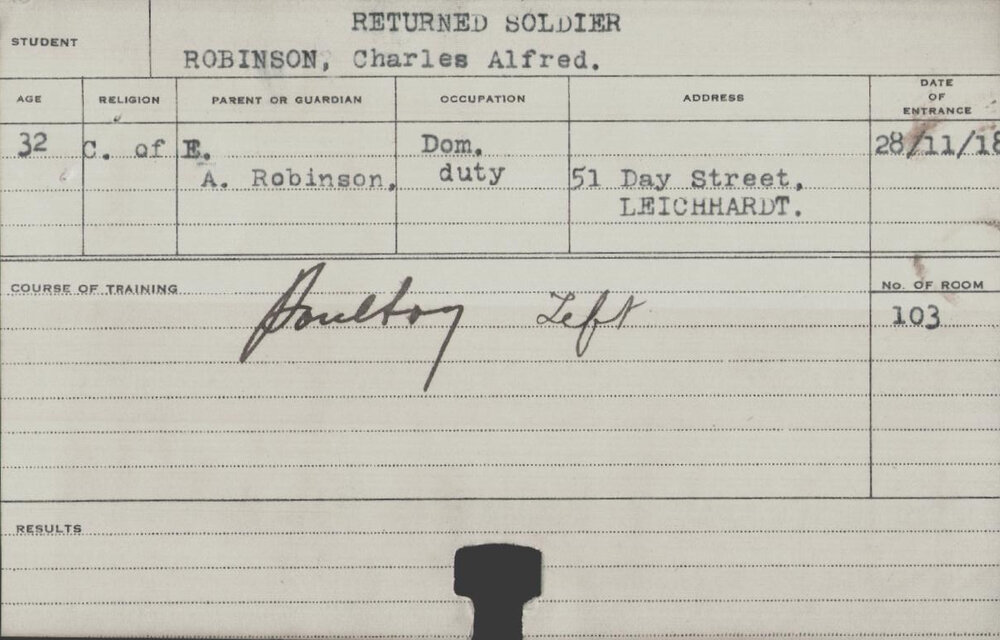 RETURNED SOLDIER
STUDENT
ROBINSON, Charles Alfred.
AGE RELIGION PARENT OR GUARDIAN OCCUPATION ADDRESS DATE OF ENTRANCE
32 C. of E. Dom. 28/11/18
A. Robinson, duty 51 Day Street,
LEICHHARDT.
COURSE OF TRAINING Poultry Left No. OF ROOM
103
RESULTS